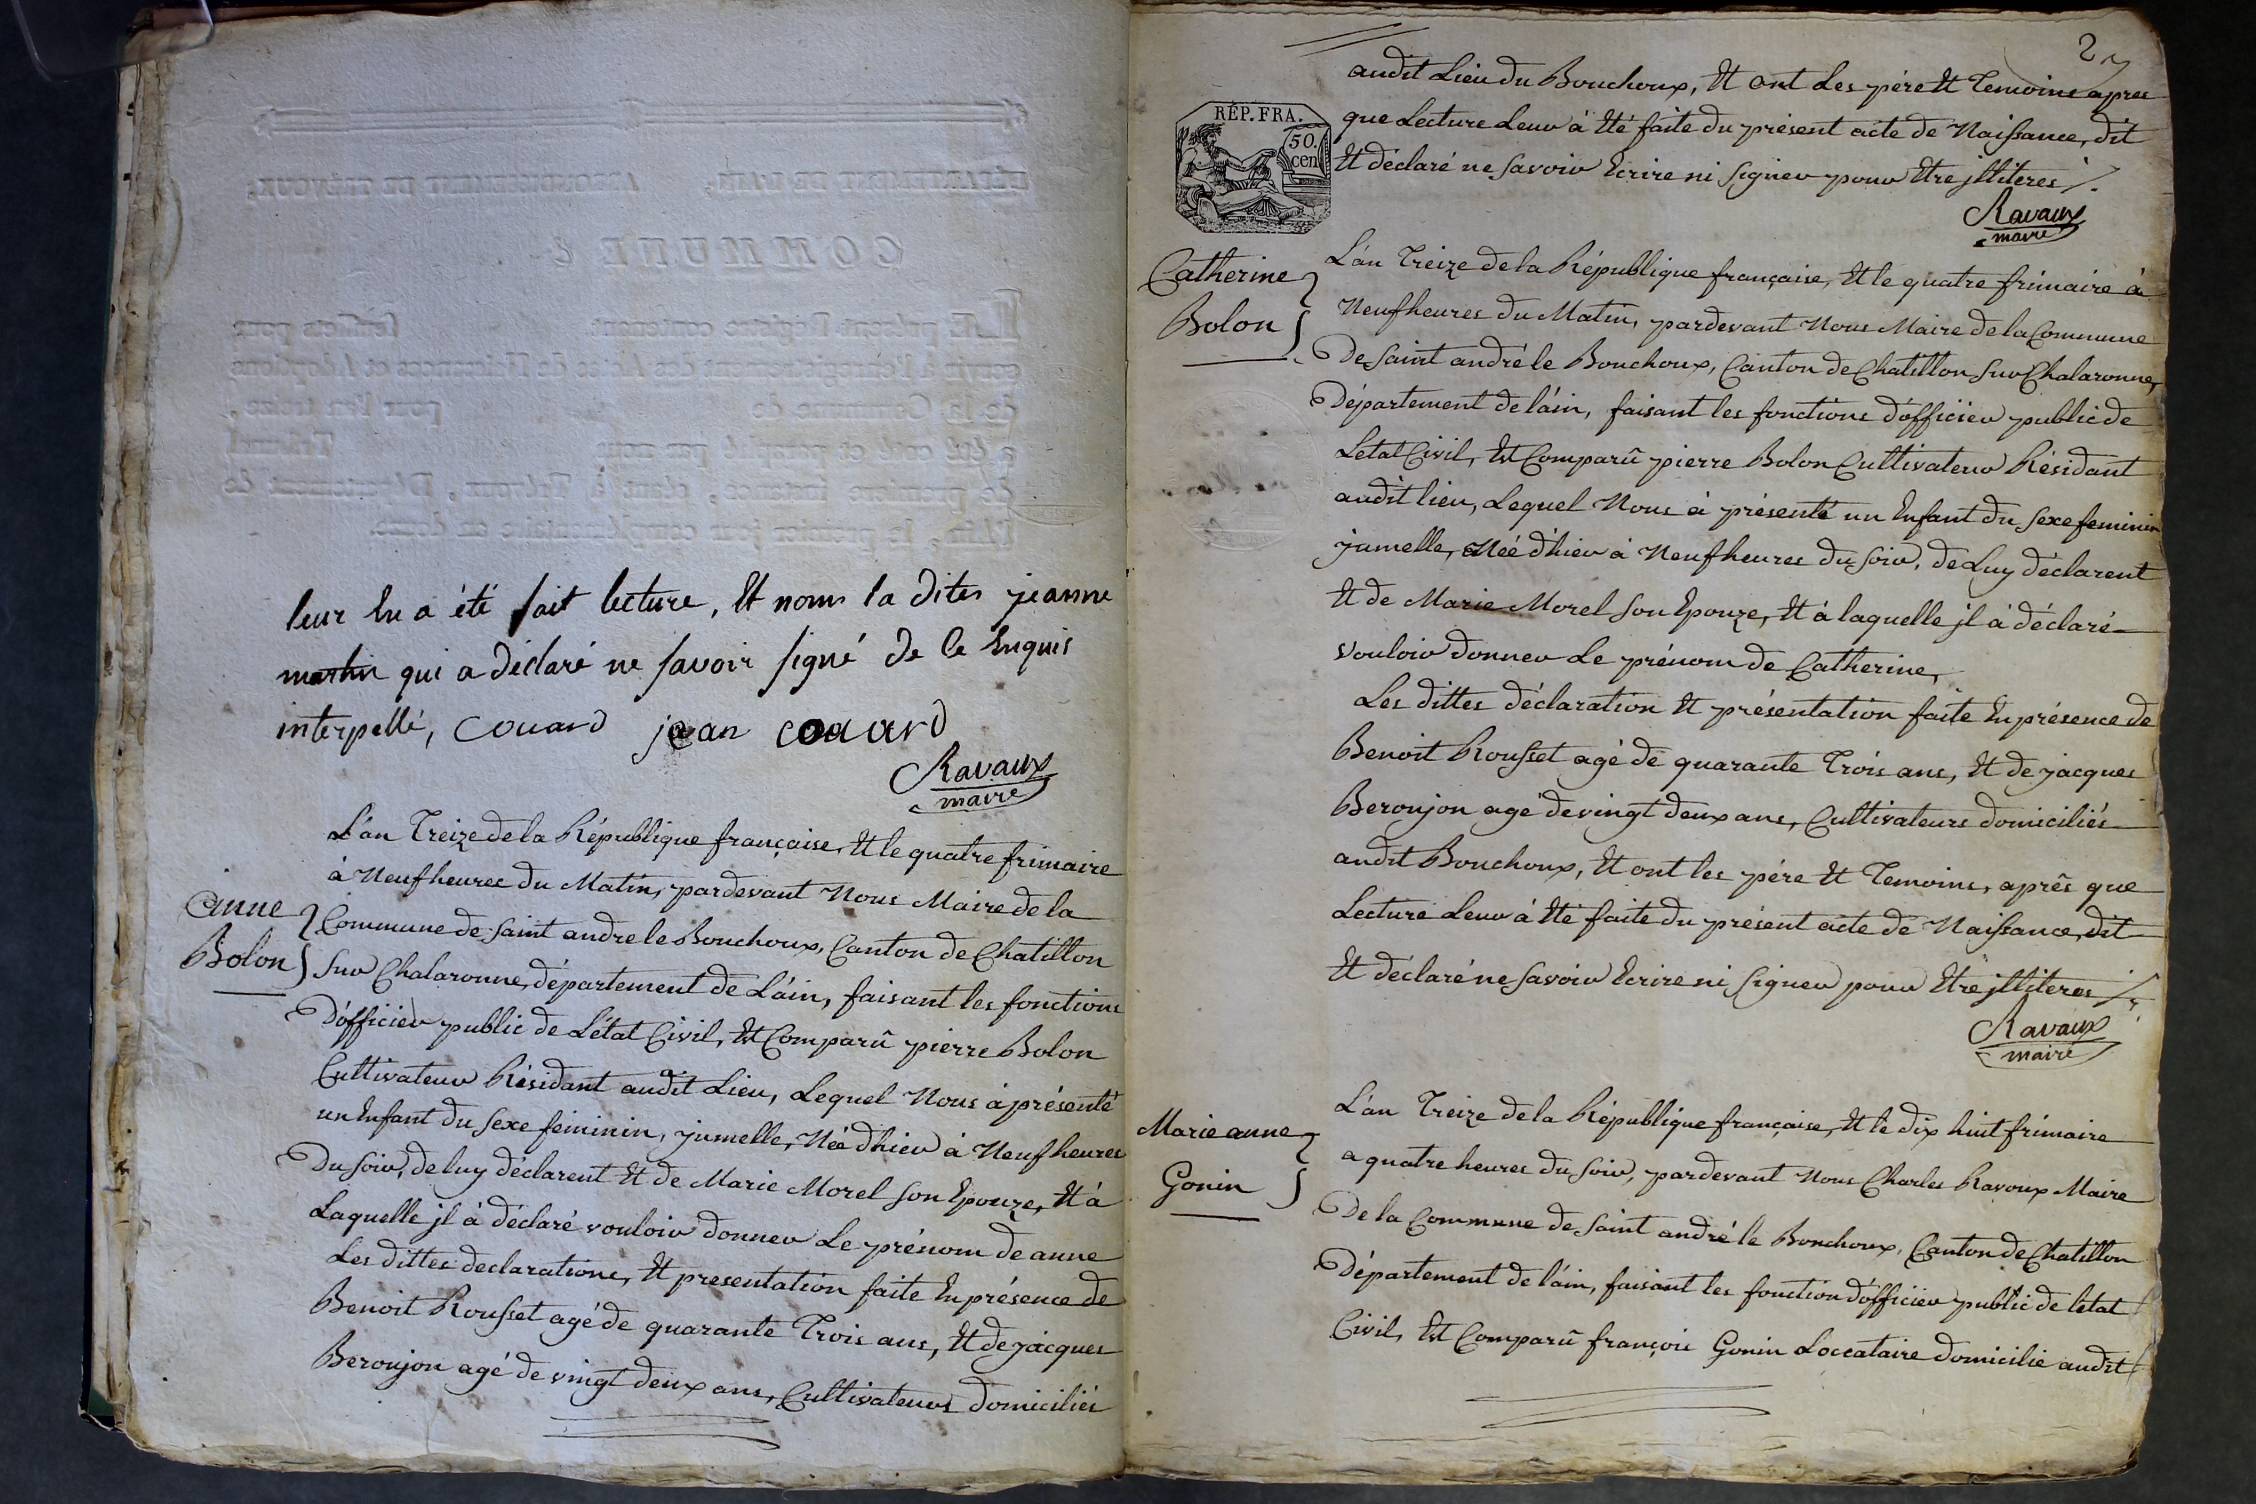 leur en a été fait lecture, Et nous la dites jeanne
martin qui a déclaré ne savoir signé de ce Enquis
interpellé, couard jean couard
Ravaux
maire
L'an Treize de la République française, Et le quatre frimaire
à Neuf heures du Matin, pardevant Nous Maire de la
anne
Bolon
Commune de saint andre le Bouchoux, Canton de Chatillon
sur Chalaronne, département de L'ain, faisant les fonctions
D'officier public de L'état Civil, Est Comparû pierre Bolon
Cultivateur Résidant audit Lieu, Lequel Nous à présenté
un Enfant du sexe feminin, jumelle, Née d'hier à Neuf heures
Du soir, de luy déclarent Et de Marie Morel son Epouze, Et à
Laquelle jl à déclaré vouloir donner Le prénom de anne
Les dittes declarations, Et presentation faite En présence de
Benoit Rousset agé de quarante Trois ans, Et de jacques
Beroujon agé de vingt deux ans, Cultivateurs domiciliés
2
audit Lieu du Bouchoux, Et ont Les pére Et Temoins apres
RÉP. FRA.
50.
cen
que Lecture Leur à Eté faite du présent acte de Naissance, dit
Et déclaré ne savoir Ecrire ni signer pour Etre jlliteres /.
Ravaux
maire
Catherine
Bolon
L'an Treize de la République française, Et le quatre frimaire à
Neuf heures du Matin, pardevant Nous Maire de la Commune
De saint andré le Bouchoux, Canton de Chatillon sur Chalaronne,
Département de l'ain, faisant les fonctions d'officier public de
L'etat Civil, Est Comparû pierre Bolon Cultivateur Résidant
audit lieu, Lequel Nous à présenté un Enfant du sexe feminin
jumelle, Née d'hier à Neuf heures du soir, de Luy déclarent
Et de Marie Morel son Epouze, Et à laquelle jl à déclaré
vouloir donner Le prénom de Catherine,
Les dittes déclaration Et présentation faite En présence de
Benoit Rousset agé de quarante Trois ans, Et de jacques
Beroujon agé de vingt deux ans, Cultivateurs domiciliés
audit Bouchoux, Et ont les pére Et Temoins, aprês que
Lecture Leur à Eté faite du présent acte de Naissance, dit
Et déclaré ne savoir Ecrire ni signer pour Etre jlliteres /.
Ravaux
maire
Marie anne
Gonin
L'an Treize de la République française, Et le dix huit frimaire
a quatre heures du soir, pardevant Nous Charles Ravoux Maire
De la Commune de saint andré le Bouchoux, Canton de Chatillon
Département de l'ain, faisant les fonction d'officier public de l'etat
Civil, Est Comparû françois Gonin Loccataire domicilié audit